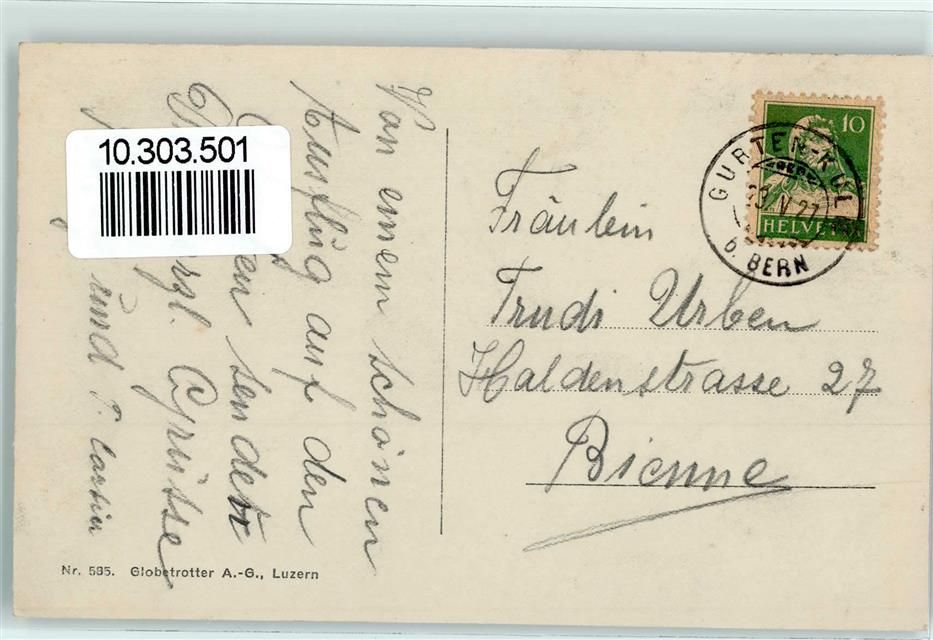 10.303.501
Von einem schönen
Ausflug auf den
sendet
herzl. Grüsse
und
Fräulein
Trudi Urben
Haldenstrasse 27
Bienne
10
HELVE
GURTEN-KUL
b. BERN
Nr. 585. Globetrotter A.-G., Luzern